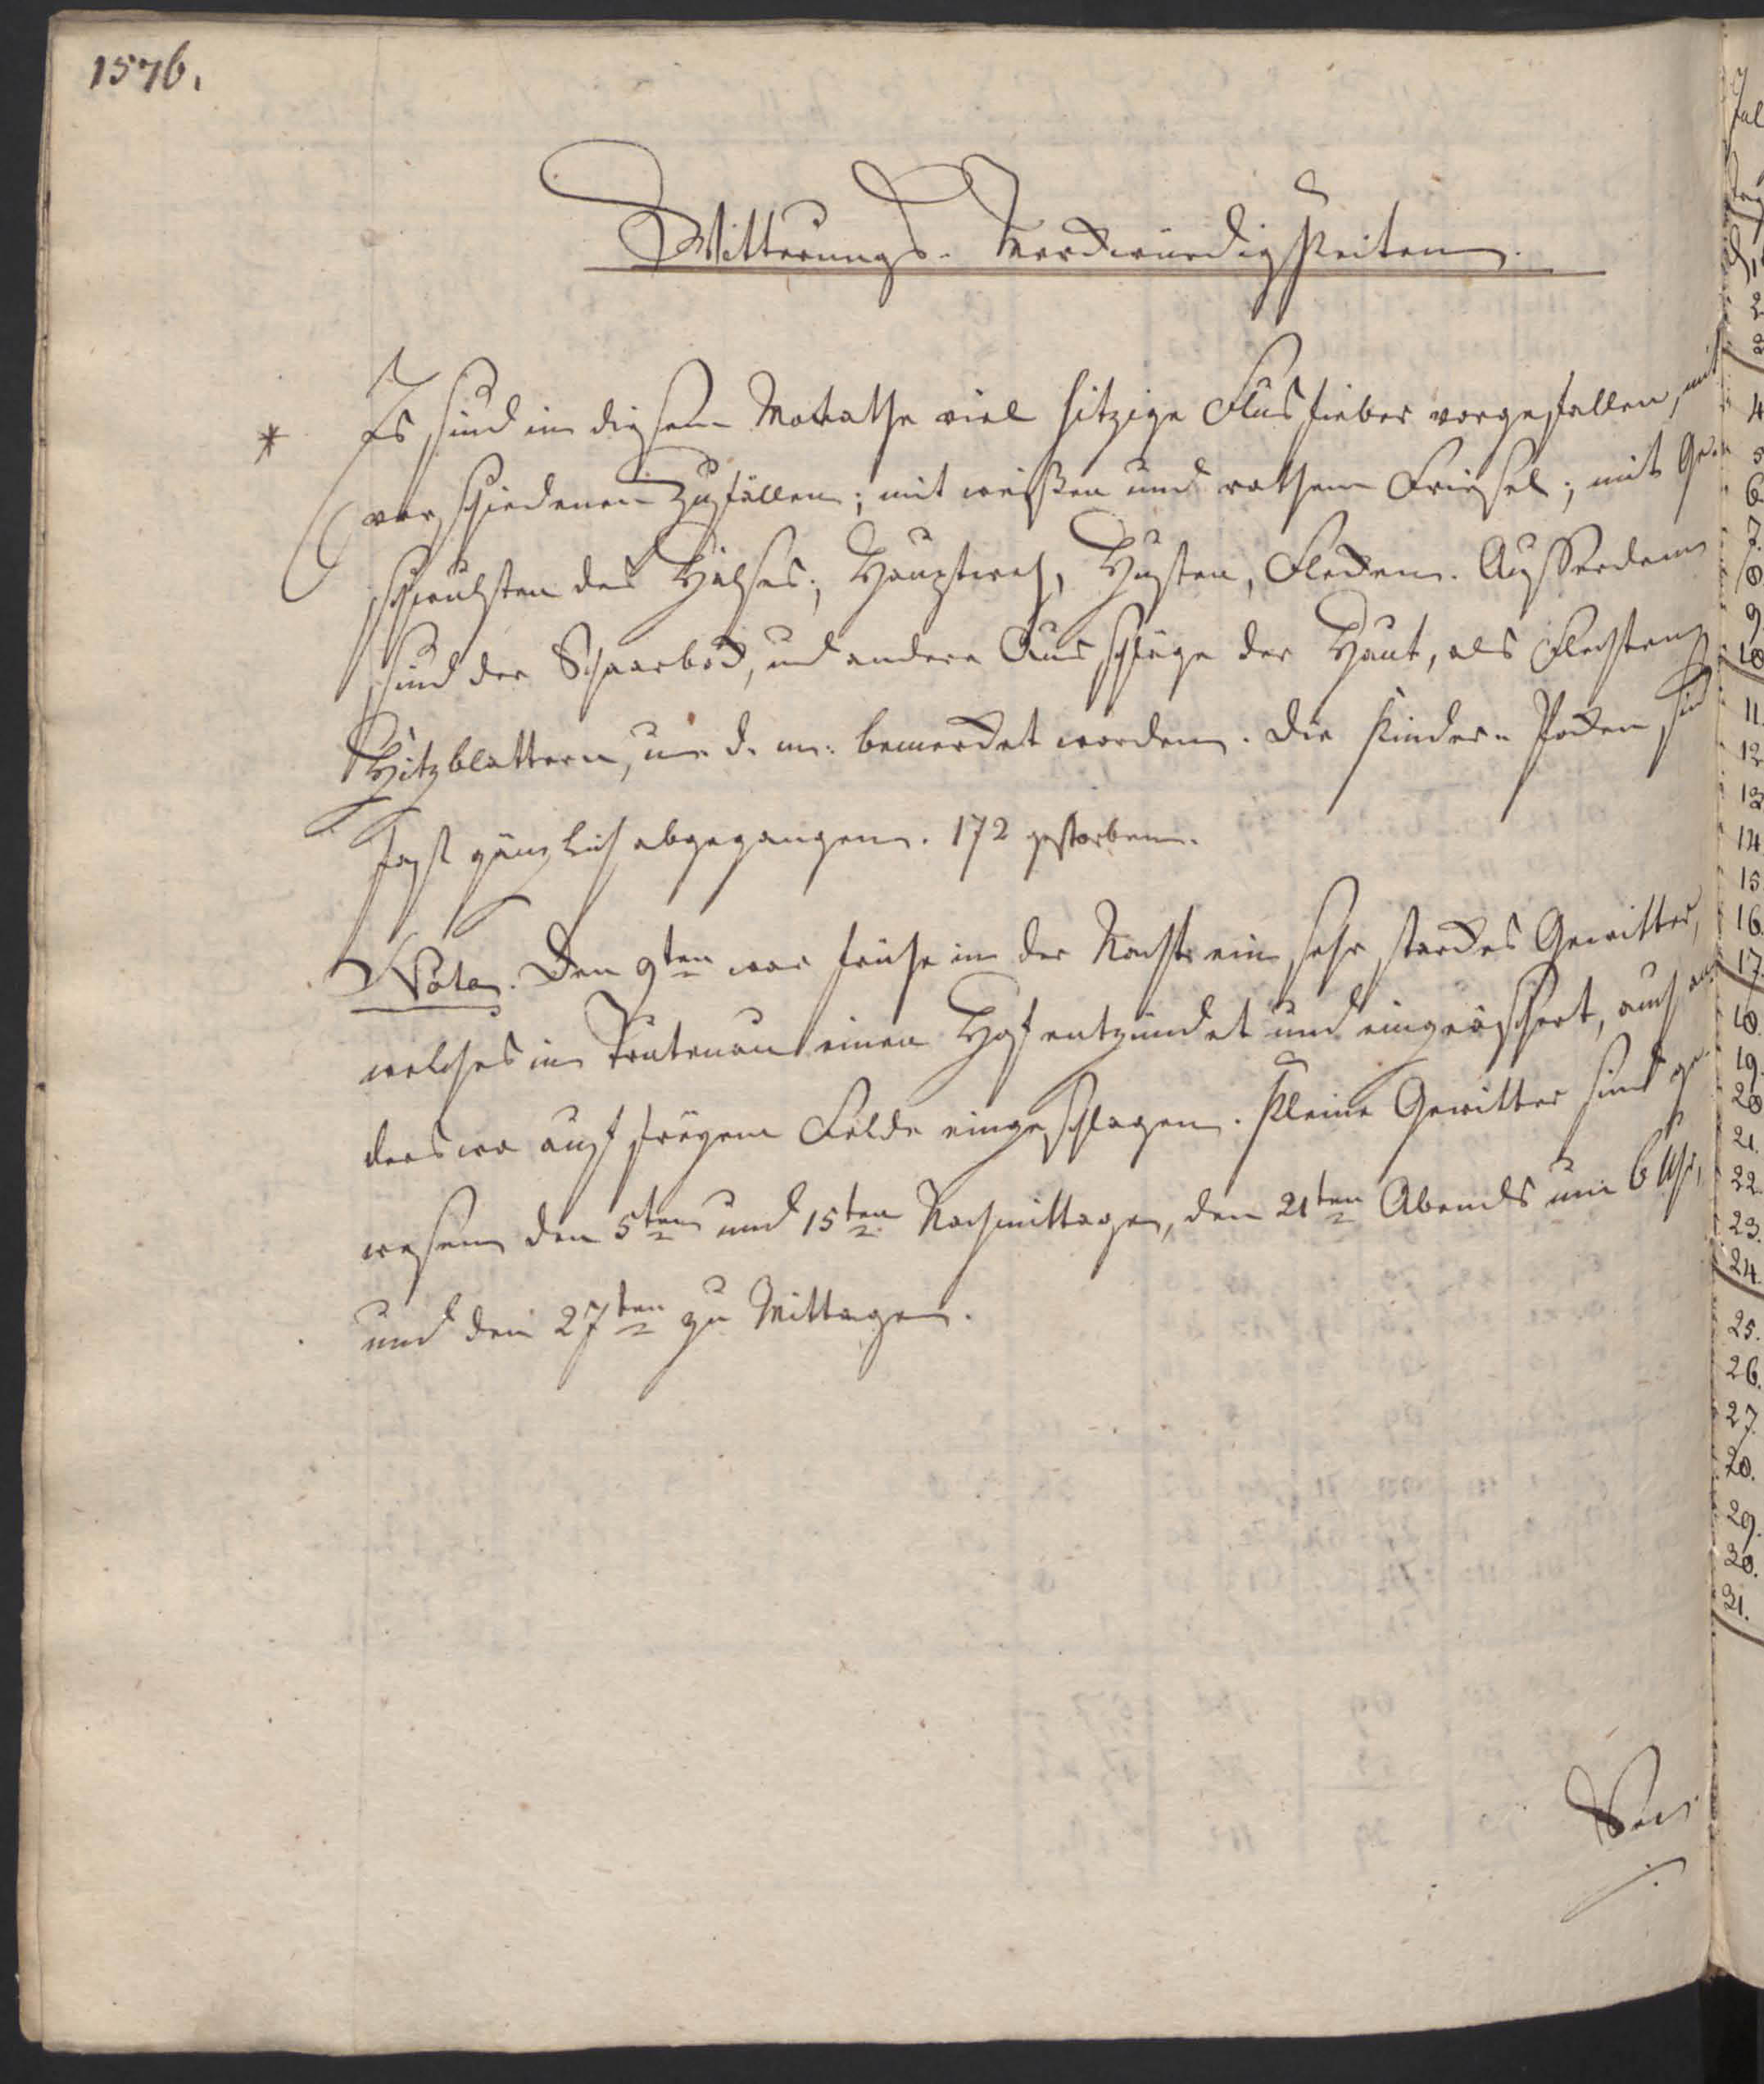 1576.
Witterungs- Merckwürdigkeiten.
* Es sind in diesem Monathe viel hitzige Flusfieber vorgefallen, mit
verschiedenen Zufällen; mit weißen und rothem Friesel; mit Ge-
schwulsten des Halses; Hauptweh, Husten, Flecken. Ausserdem
sind der Schaarbock, und andere Ausschläge der Haut, als Flechten
Hitzblattern, u. d. m. bemercket worden. Die Kinder- Pocken sind
fast gänzlich abgegangen. 172 gestorben.
Nota. Den 9ten war frühe in der Nacht ein sehr starckes Gewitter,
welches in Trutenau einen Hof entzündet und eingeäschert, auch an
derswo auf freyem Felde eingeschlagen. Kleine Gewitter sind ge-
wesen den 5ten und 15ten Nachmittages, den 21ten Abends um 6 Uhr,
und den 27ten zu Mittage.
11.
12
13
14
15
16.
17.
18.
19.
20
21.
22
23.
24.
25.
26.
27.
28.
29.
30.
31.